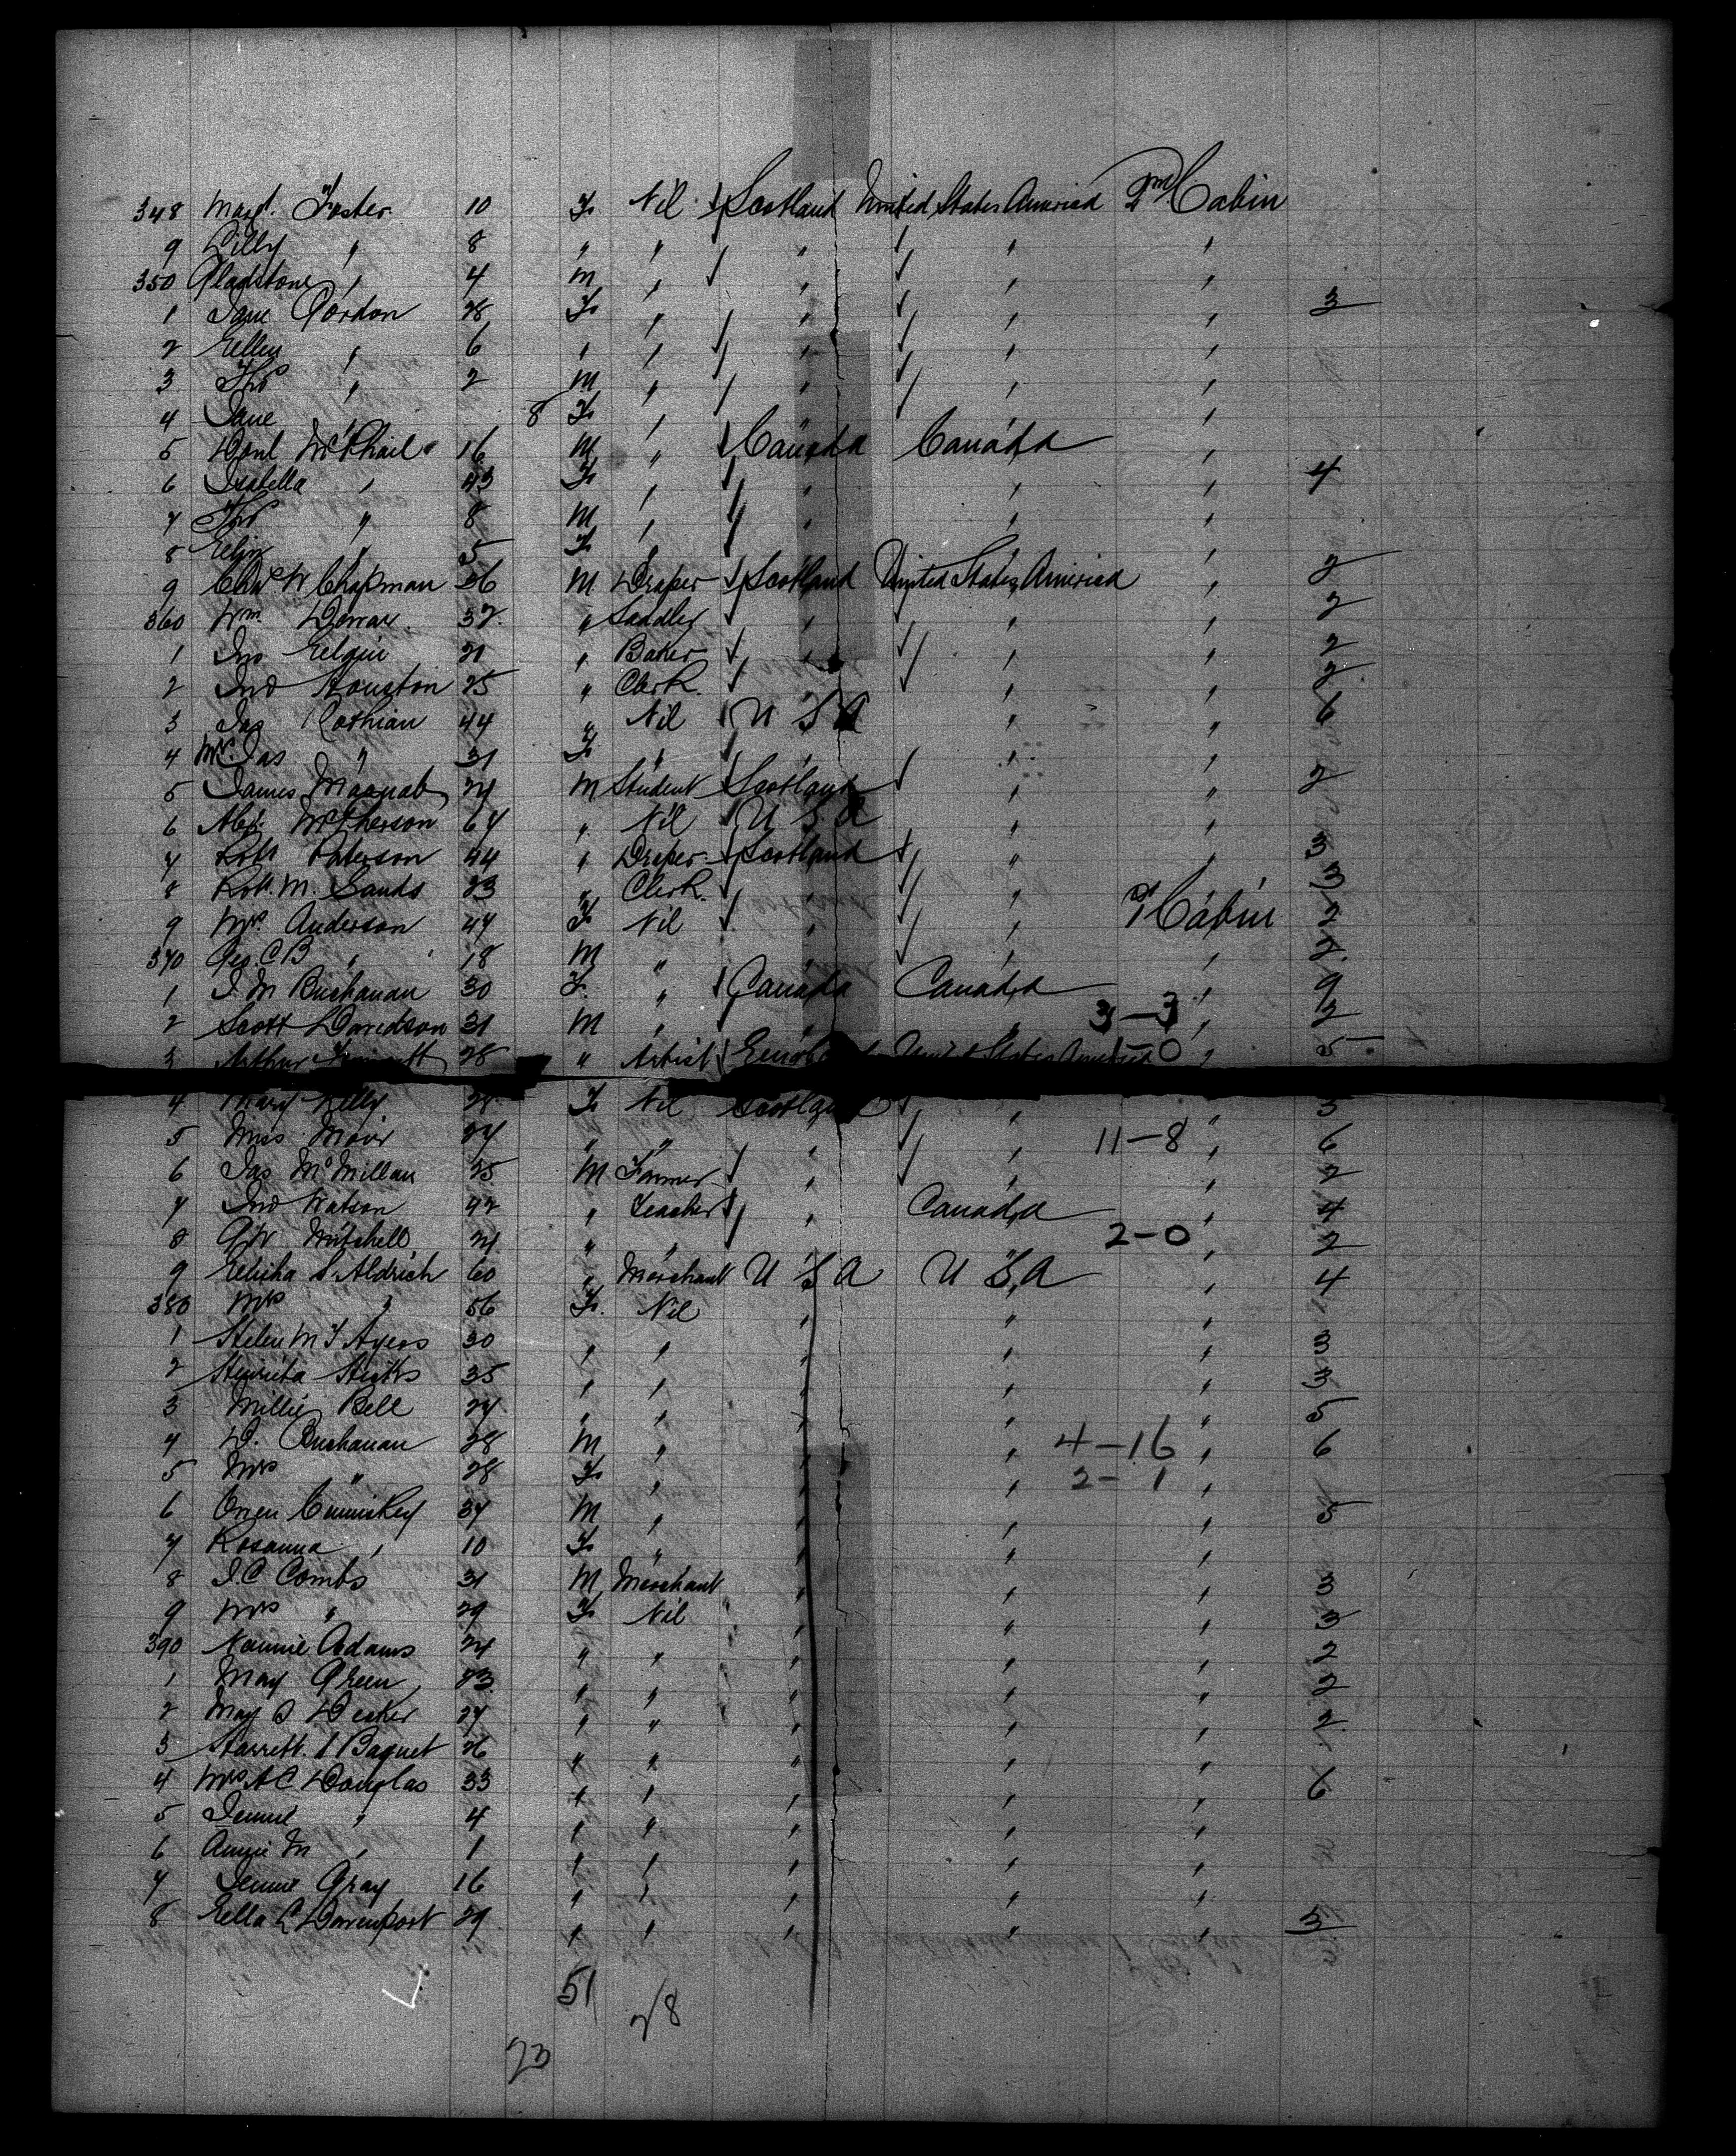 348 Margt. Foster 10 F Nil Scotland United States America 2nd Cabin
9 Lilly " 8 " " " " "
350 Gladstone " 4 M " " " "
1 Jane Gordon 28 F " " " " 3
2 Ellen " 6 " " " " "
3 Thos " 2 M " " " "
4 Jane " 8 F " " " "
5 Donl McPhail 16 M " Canada Canada "
6 Isabella " 43 F " " " " 4
7 Thos " 8 M " " " "
8 " 5 F " " " "
9 Chas W Chapman 36 M Draper Scotland United States America " 2
360 Wm. Dewar 32 " Saddler " " " 2
1 Jno Elgin 21 " Baker " " " 2
2 Jno Houston 25 " Clerk " " " 2
3 Jas Lothian 44 " Nil U S A " " 6
4 Mrs. Jas " 31 F " " " "
5 James Macnab 24 M Student Scotland " " 2
6 Alex. McPherson 64 " Nil U S A " "
7 Robt Paterson 44 " Draper Scotland " " 3
8 Robt. M. Sands 23 " Clerk " " 3
9 Mrs. Anderson 47 F Nil " " Cabin 2
370 Geo. C B " 18 M " " " " 2
1 J. M Buchanan 30 F. " Canada Canada " 9
2 Scott Davidson 31 M " " " 3-3 " 2
3 Arthur 28 " Artist United States America 1-0 " 5
4 Mary Kelly 21 F Nil Scotland " " 3
5 Miss Moir 24 " " " " 11-8 " 6
6 Jas McMillan 25 M Farmer " " " 2
7 Jno Watson 42 " Teacher " Canada " 4
8 Mitchell 21 " " " " 2-0 " 2
9 Elisha S Aldrich 60 " Merchant U S A U S A " 4
380 Mrs " 56 F. Nil " " "
1 Helen M F Ayers 30 " " " " " 3
2 Henrieta Hicks 35 " " " " " 3
3 Millie Bell 24 " " " " " 5
4 D. Buchanan 28 M " " " 4-16 " 6
5 Mrs " 28 F " " " 2-1 "
6 Owen Cumiskey 37 M " " " " 5
7 Rosanna " 10 F " " " "
8 J. C Combs 31 M Merchant " " " 3
9 Mrs " 29 F Nil " " " 3
390 Nannie Adams 24 " " " " " 2
1 May Green 23 " " " " " 2
2 May D Decker 24 " " " " " 2
3 Harrett. S Baquet 26 " " " " "
4 Mrs A C Douglas 33 " " " " " 6
5 Jennie " 4 " " " " "
6 Annie M " 1 " " " " "
7 Jennie Gray 16 " " " " "
8 Ella L Davenport 29 " " " " " 3
51
28
23